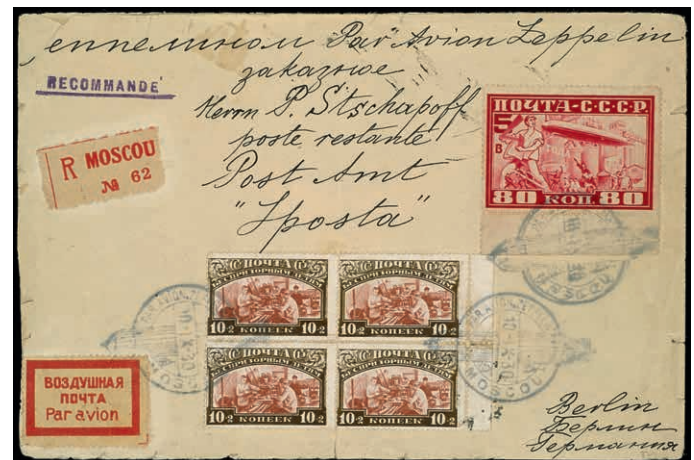 еппелином Par Avion Zeppelin
заказное
RECOMMANDÉ
Herrn P. Stschapoff
poste restante
Post Amt
"Iposta"
R MOSCOU
№ 62
ПОЧТА-С.С.С.Р.
5
В
4
80 КОП 80
ПОЧТА
БЕСПРИЗОРНЫМ ДЕТЯМ
10+2 КОПЕЕК 10+2
ПОЧТА
БЕСПРИЗОРНЫМ ДЕТЯМ
10+2 КОПЕЕК 10+2
ПОЧТА
БЕСПРИЗОРНЫМ ДЕТЯМ
10+2 КОПЕЕК 10+2
ПОЧТА
БЕСПРИЗОРНЫМ ДЕТЯМ
10+2 КОПЕЕК 10+2
ВОЗДУШНАЯ
ПОЧТА
Par avion
Berlin
Берлин
Германия